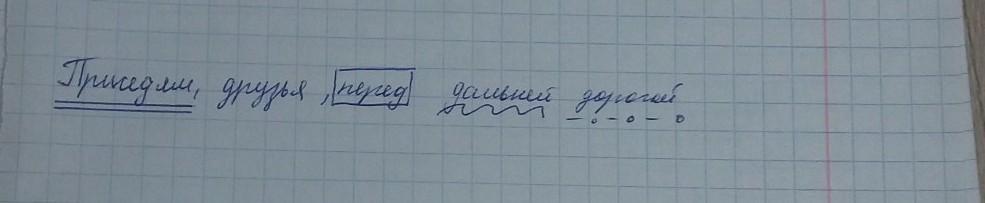 Присядем, друзья, перед дальней дорогой